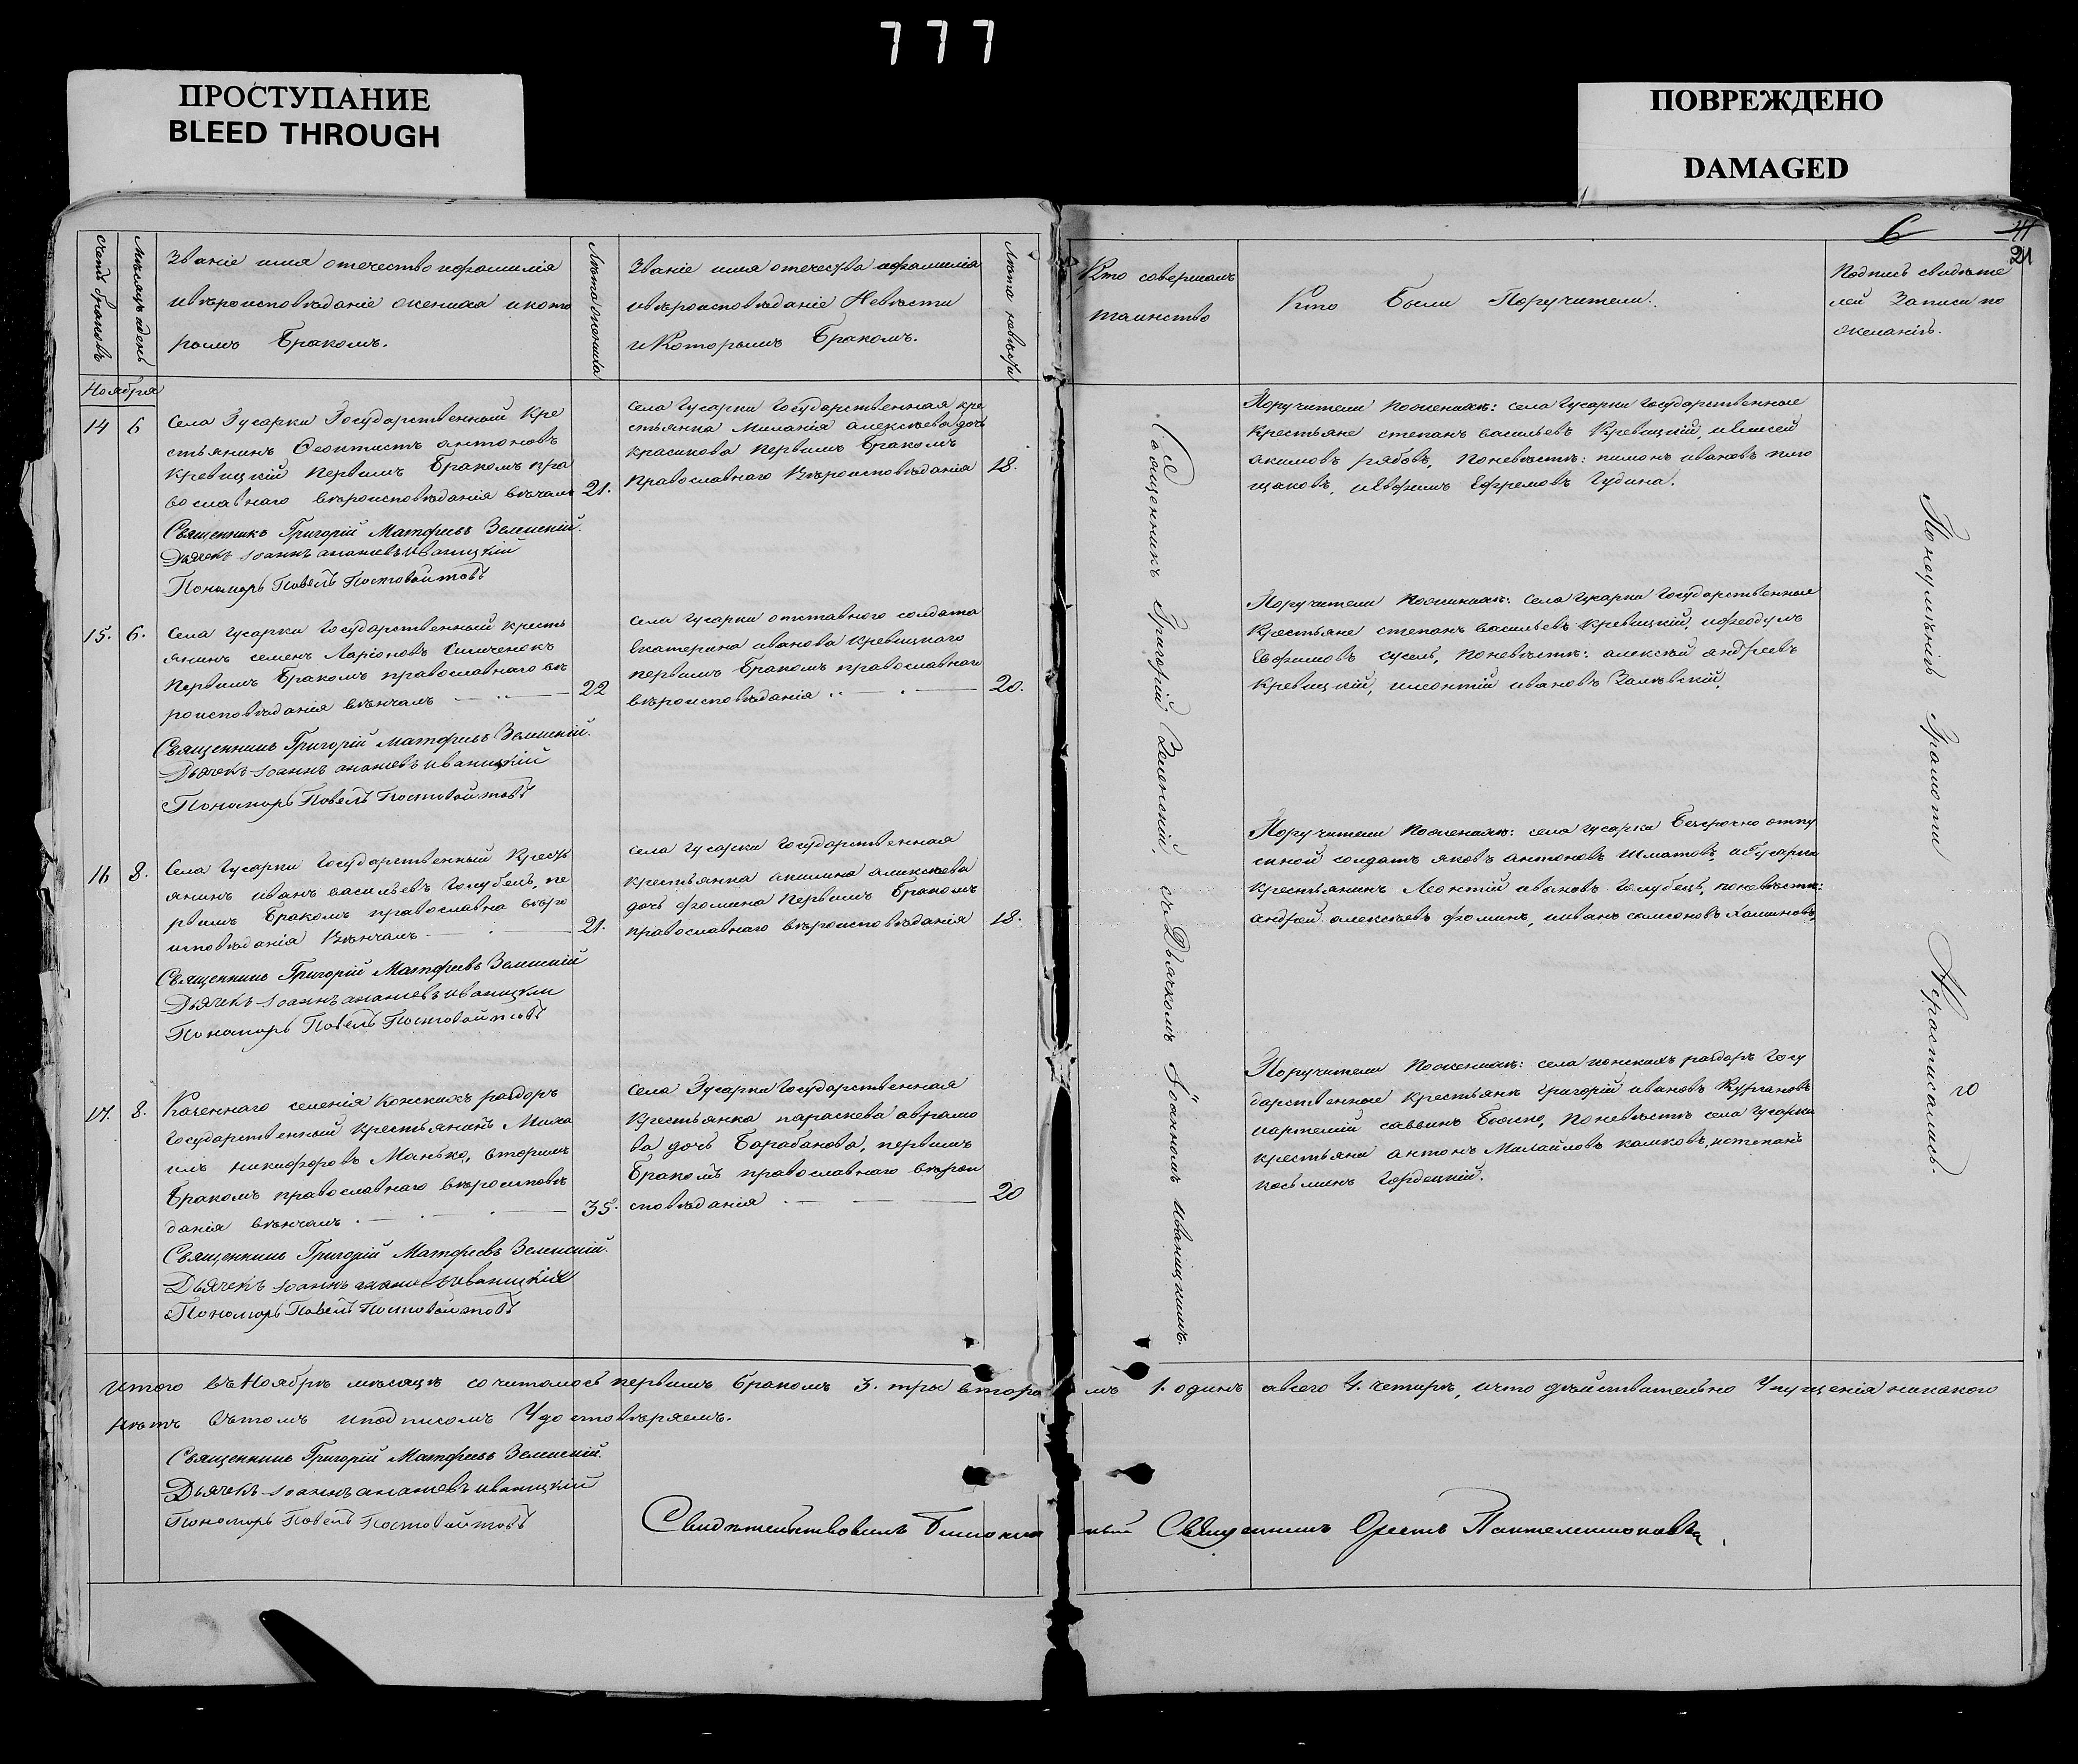 777
ПРОСТУПАНИЕ
BLEED THROUGH
ПОВРЕЖДЕНО
DAMAGED
6
21
счетъ браковъ
мѣсяцъ и день
Званіе имя отечество и фамилія
и вѣроисповѣданіе жениха и кото
рымъ Бракомъ.
Лѣта жениха
Званіе имя отечества и фамилія
и вѣроисповѣданіе Невѣсты
и Которымъ Бракомъ.
Лѣта невѣсты
Кто совершалъ
таинство
Кто Были Поручители.
Подпись свидѣте
лей Записи по
желанію.
Ноября
14 6
Села Гусарки Государственный Кре
стьянинъ Феоктистъ антоновъ
Кревицкій Первымъ Бракомъ пра
вославнаго вѣроисповѣданія вѣнчалъ
21.
Священникъ Григорій Матфеевъ Зеленскій.
Дьячекъ Іоаннъ ананіевъ иваницкій
Пономарь Павелъ Постовойтовъ
села Гусарки Государственная кре
стьянка Миланія алексѣева дочь
красикова Первымъ Бракомъ
Православнаго Вѣроисповѣданія
18.
Поручители по женихѣ: села Гусарки Государственные
крестьяне степанъ васильевъ Кревицкій, и
акимовъ рябовъ, по невѣстѣ: пименъ ивановъ
и Евфимъ Ефремовъ Гудина.
15. 6.
Села Гусарки Государственный кресть
янинъ семенъ Ларіоновъ
Первымъ Бракомъ православнаго вѣ
роисповѣданія вѣнчалъ
22
Священникъ Григорій Матфеевъ Зеленскій.
Дьячекъ Іоаннъ ананіевъ иваницкій
Пономарь Павелъ Постовойтовъ
села Гусарки отставного солдата
Екатерина иванова кревицкаго
первымъ Бракомъ православнаго
вѣроисповѣданія
20.
Поручители по женихѣ: села Гусарки Государственные
Крестьяне степанъ васильевъ кревицкій, и
Евфимовъ сусель, по невѣстѣ: алексѣй андреевъ
кревицкій, и леонтій ивановъ Залѣвскій.
16 8.
Села Гусарки Государственный Кресть
янинъ иванъ васильевъ Голубецъ, пе
рвымъ Бракомъ православна вѣро
исповѣданія Вѣнчалъ
21.
Священникъ Григорій Матфеевъ Зеленскій
Дьячекъ Іоаннъ ананіевъ иваницкій
Пономарь Павелъ Постовойтовъ
села Гусарки Государственная
крестьянка акилина алексѣева
дочь фомина Первымъ Бракомъ
православнаго вѣроисповѣданія
18.
Поручители по женихѣ: села Гусарки Безсрочно отпу
скной солдатъ яковъ антоновъ Шматовъ, и Гусарки
крестьянинъ Леонтій ивановъ Голубецъ, по невѣстѣ:
андрей алексѣевъ фоминъ, и иванъ самсоновъ
17. 8.
Казеннаго селенія Конскихъ раздоръ
Государственный крестьянинъ Миха
илъ никифоровъ Манько, вторымъ
Бракомъ православнаго вѣроисповѣ
данія вѣнчалъ.
35.
Священникъ Григорій Матфеевъ Зеленскій.
Дьячекъ Іоаннъ ананіевъ иваницкій
Пономарь Павелъ Постовойтовъ
Села Гусарки Государственная
Крестьянка параскева аврамо
ва дочь Барабанова, первымъ
Бракомъ православнаго вѣрои
сповѣданія
20
Поручители по женихѣ: села конскихъ раздоръ Госу
дарственные крестьяне григорій ивановъ Кургановъ
саввинъ по невѣстѣ села Гусарки
крестьяне антонъ Михайловъ
косьминъ Городецкій.
Священникъ Григорій Зеленскій съ Дьячкомъ Іоанномъ иваницкимъ.
По неумѣнію Грамоты Нерасписались.
Итого въ Ноябрѣ мѣсяцѣ сочиталось первымъ бракомъ 3. три вторымъ 1. одинъ а всего 4. четыре, и что дѣйствительно Упущенія никакого
нѣтъ въ томъ и подписомъ Удостовѣряемъ.
Священникъ Григорій Матфеевъ Зеленскій.
Дьячекъ Іоаннъ ананіевъ иваницкій
Пономарь Павелъ Постовойтовъ
Свидѣтельствовалъ Священникъ Орестъ